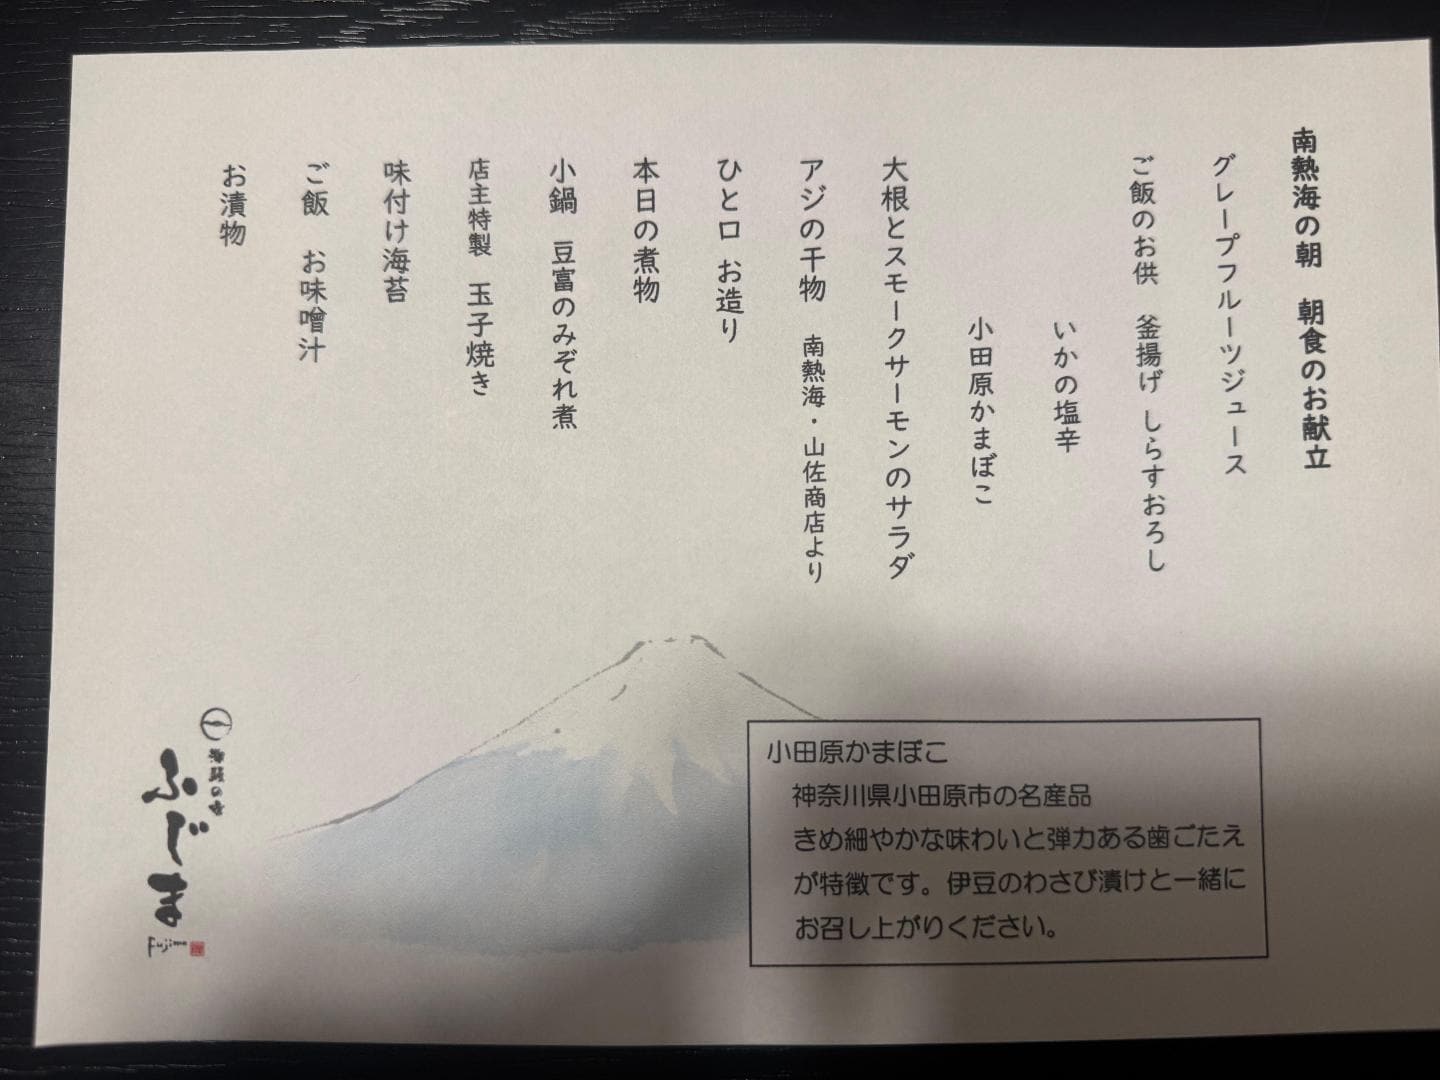 南熱海の朝　朝食のお献立
グレープフルーツジュース
ご飯のお供　釜揚げ しらすおろし
いかの塩辛
小田原かまぼこ
大根とスモークサーモンのサラダ
アジの干物　南熱海・山佐商店より
ひと口 お造り
本日の煮物
小鍋　豆富のみぞれ煮
店主特製　玉子焼き
味付け海苔
ご飯　お味噌汁
お漬物
小田原かまぼこ
神奈川県小田原市の名産品
きめ細やかな味わいと弾力ある歯ごたえ
が特徴です。伊豆のわさび漬けと一緒に
お召し上がりください。
ふじま